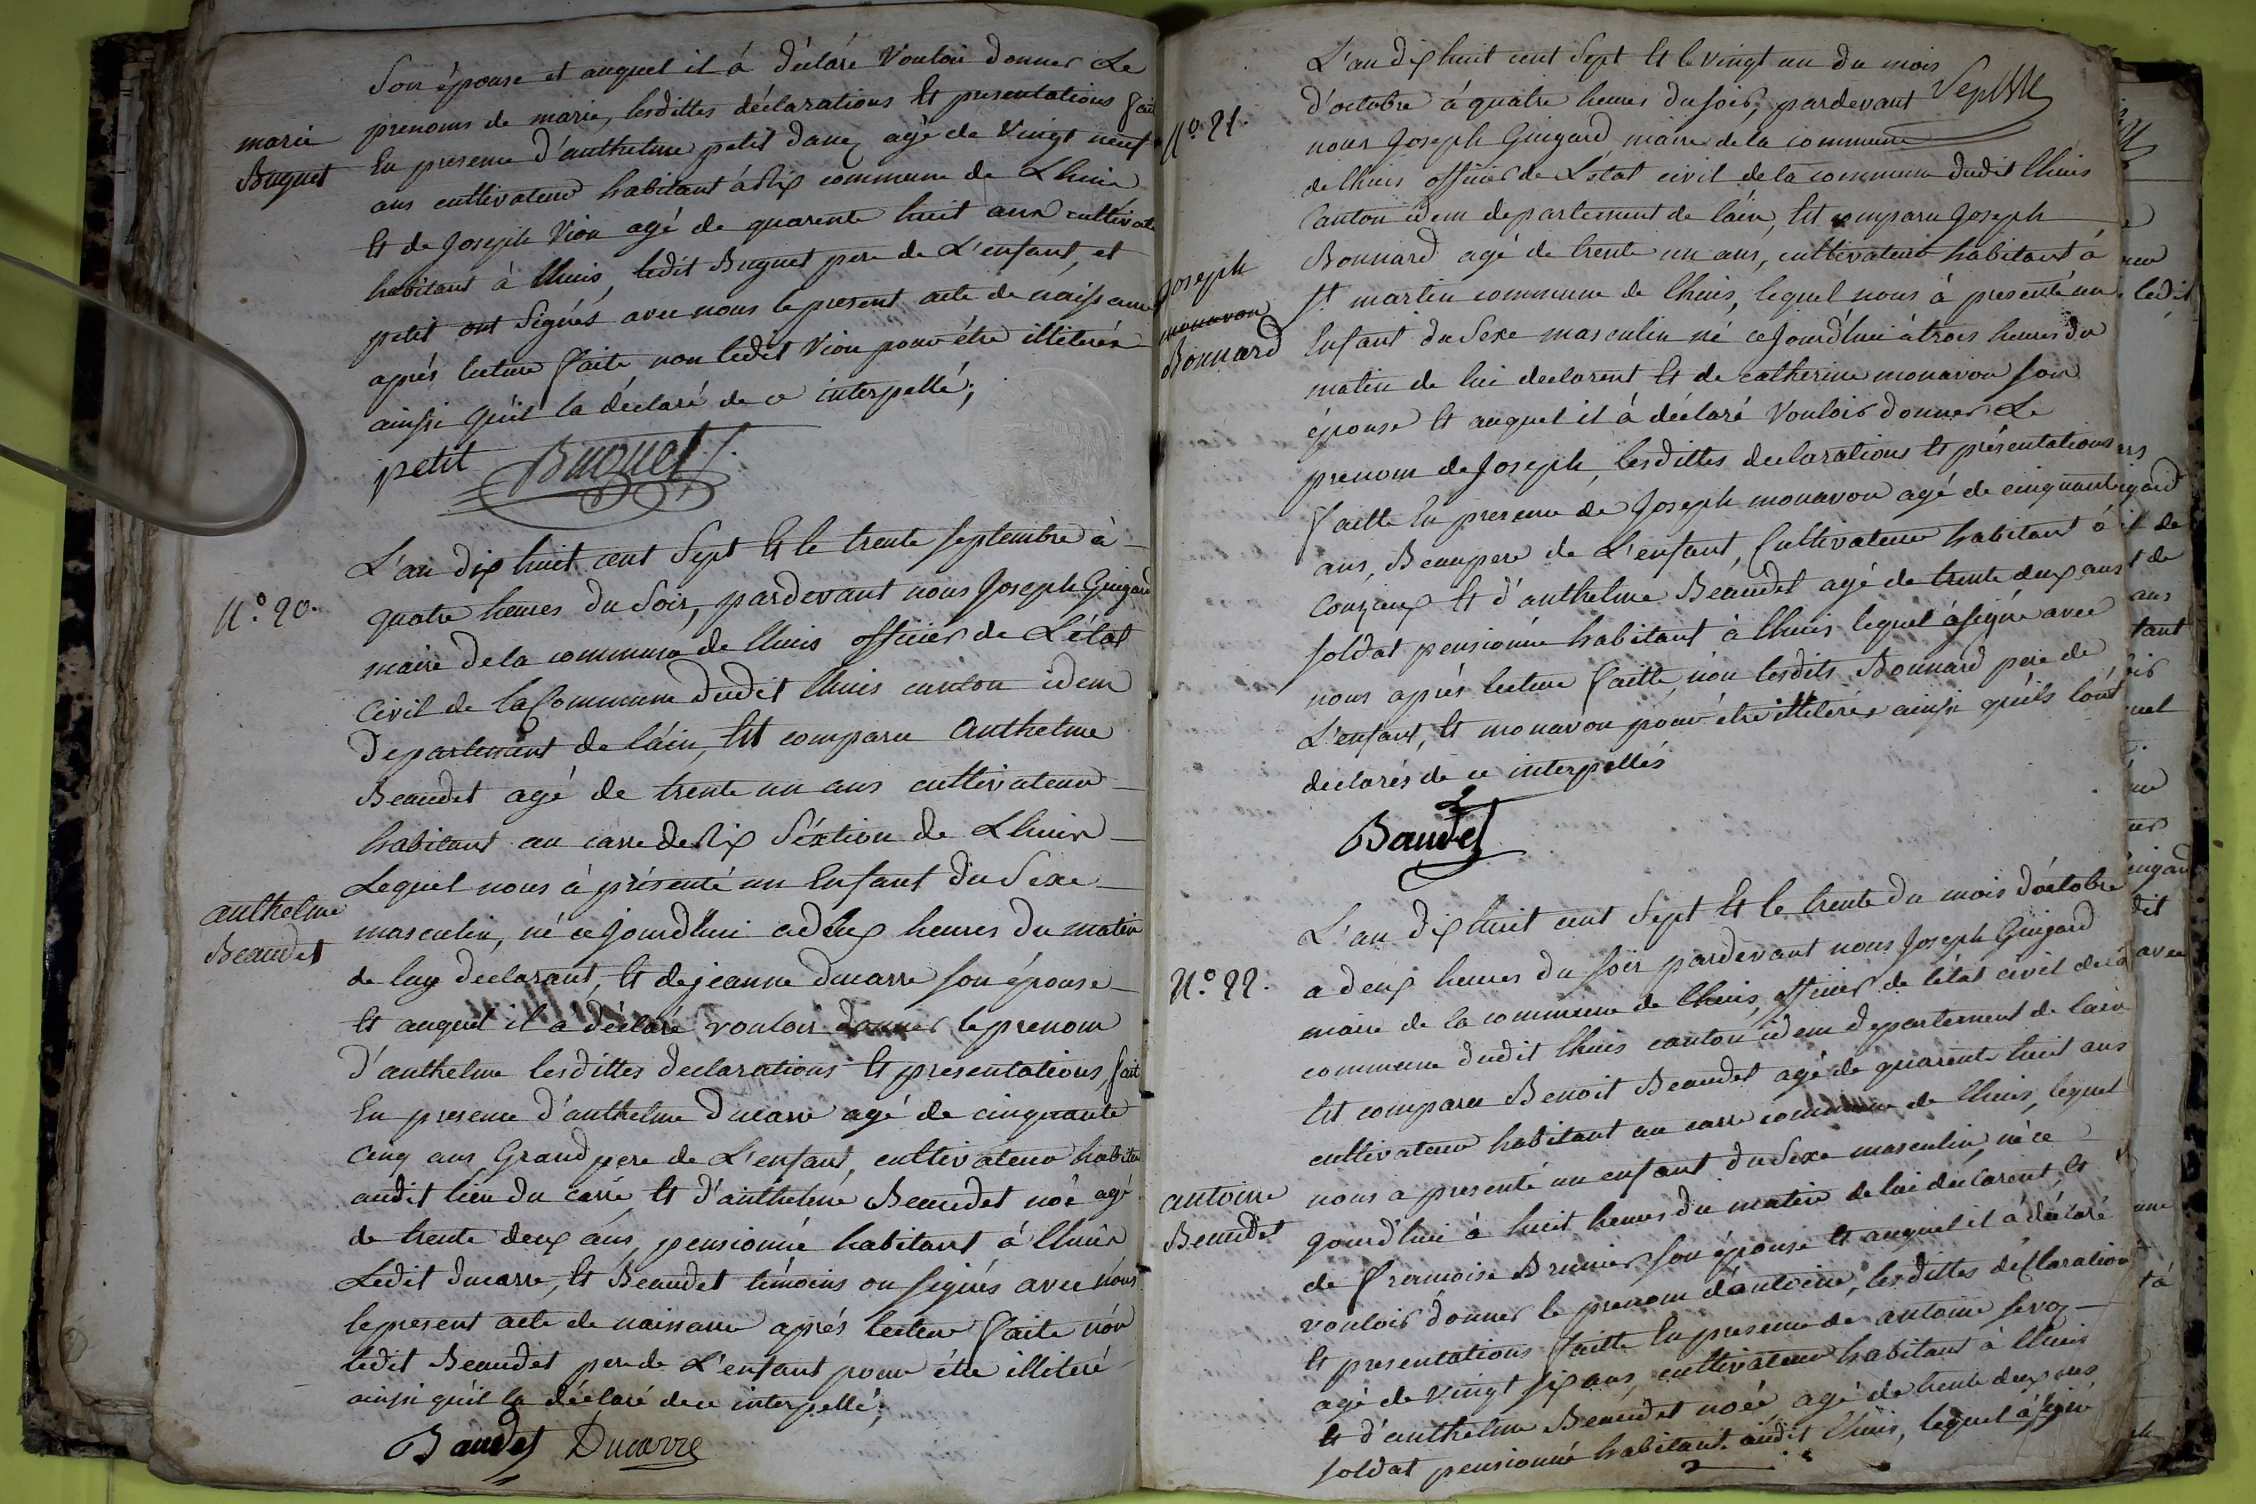 Son épouse et auquel il à déclaré Vouloir donner Le
prenoms de marie, lesdittes déclarations Et presentations fait
marie
Buguet
En presence d'anthelme petit Danez agé de Vingt neuf
ans cultivateur habitant à Rix commune de Lhuis
Et de Joseph Vion agé de quarente huit ans cultivate
habitant à Lhuis, ledit Buguet pere de L'enfant, et
petit ont Signés avec nous le present acte de naissance
aprés lecture faite non ledit Vion pour étre illiterés
ainsi qu'il la déclaré de ce interpellé;
petit Buguet
L'an dix huit cent Sept Et le trente septembre à
N.º 20.
quatre heures du Soir, pardevant nous Joseph Guigard
maire de la commune de lhuis officier de L'état
Civil de la Commune dudit lhuis canton idem
Departement de l'áin, Est comparu Anthelme
Beaudet agé de trente un ans cultivateur
habitant au carre de Rix Séction de Lhuis
Lequel nous à présenté un Enfant du Sexe
anthelme
Beaudet
masculin, né ce jourd'hui a deux heures du matin
de luy déclarant, Et de jeanne ducarre son épouse
Et auquel il a déclaré vouloir donner le prenom
d'anthelme lesdittes declarations Et presentations, fait
En presence d'anthelme Ducarre agé de cinquante
Cinq ans Grand pere de L'enfant, cultivateur habitan
audit lieu du carre, Et d'anthelme Beaudet noé agé
de trente deux ans, pensionné habitant á lhuis
Ledit ducarre, Et Beaudet témoins on signés avec nous
le present acte de naissance aprés lecture faite nón
ledit Beaudet pere de L'enfant pour étre illiteré
ainsi qu'il la déclaré de ce interpellé;
Baudet Ducarre
L'an dix huit cent Sept Et le vingt un du mois
N.º 21.
d'octobre à quatre heures du soir, pardevant
nous Joseph Guigard maire de la commune
de lhuis officier de L'état civil de la commune dudit lhuis
Canton idem departement de l'áin, Est comparu Joseph
Joseph
monavon
Bonnard
Bonnard agé de trente un ans, cultivateur habitant à
St martin commune de lhuis, lequel nous à presenté un
Enfant du Sexe masculin né ce Jourd'hui à trois heures du
matin de lui declarent Et de catherine monavon son
épouse Et auquel il à déclaré Vouloir donner Le
prenom de Joseph, lesdittes declarations Et présentations
faitte En presence de Joseph monavon agé de cinquante
ans, Beaupere de L'enfant, Cultivateur habitant à
Conzieux Et d'anthelme Beaudet agé de trente deux ans
soldat pensionnée habitant à lhuis lequel à signé avec
nous aprés lecture faitte nón lesdits Bonnard pere de
L'enfant, Et monavon pour étre illiterés ainsi qu'ils lónt
declarés de ce interpellés
Baudet
L'an dix huit cent Sept Et le trente du mois d'óctobre
N.º 22.
a deux heures du soir pardevant nous Joseph Guigard
maire de la commune de lhuis, officier de l'état civil de la
commune dudit lhuis canton idem departement de lain
Est comparu Benoit Beaudet agé de quarente huit ans
cultivateur habitant au carre commune de lhuis, lequel
nous a presenté un enfant du Sexe masculin, né ce
antoine
Beaudet
jourd'hui à huit heures du matin de lui declarent, Et
de francoise Brunier son épouse Et auquel il à déclaré
vouloir donner le prenom d'antoine, lesdittes déclaration
Et presentations faitte En presence de antoine
agé de Vingt six ans, cultivateur habitant à lhuis
Et d'anthelme Beaudet noéé agé de trente deux ans
soldat pensionné habitant audit lhuis, lequel à signé